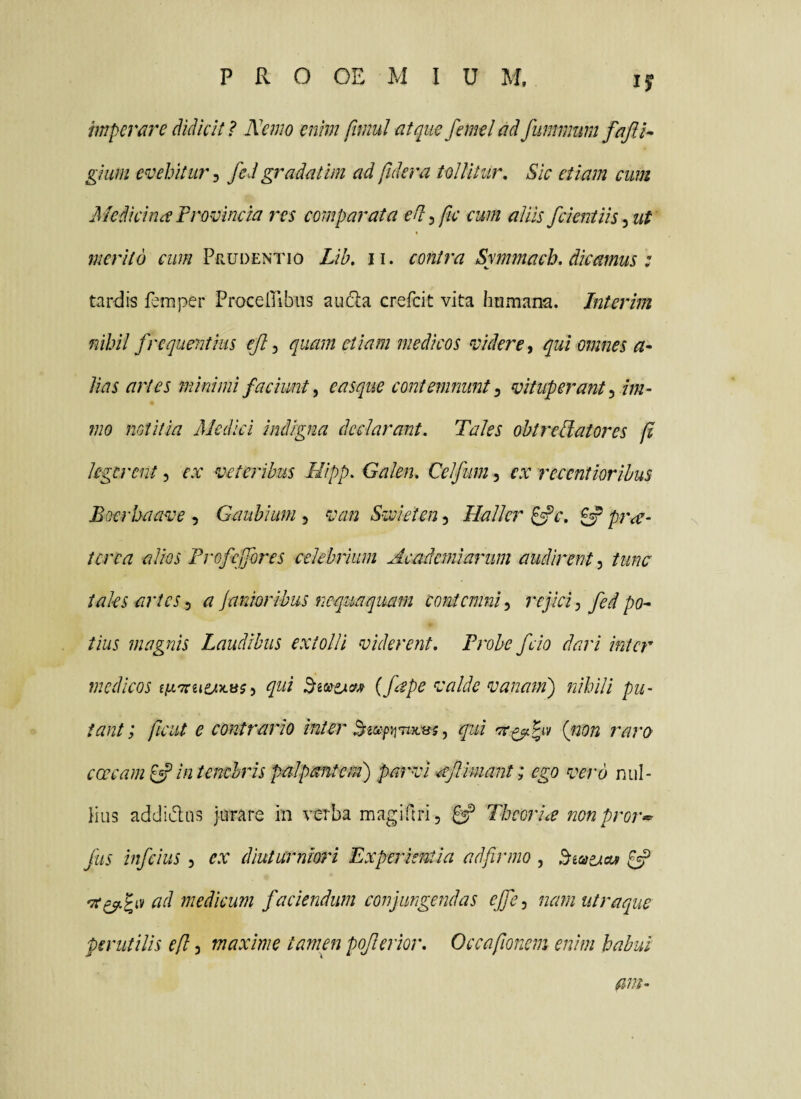 PROOEMIUM. 15
imperare didicit? Nemo enim ſimul atque ſemel ad ſummum faſti-
gium evehitur, ſed gradatim ad ſidera tollitur. Sic etiam cum
Medicinæ Provincia res comparata eſt, ſic cum aliis ſcientiis, ut
meritò cum PRUDENTIO Lib. II. contra Symmach. dicamus:
tardis ſemper Proceſſibus aucta creſcit vita humana. Interim
nihil frequentius eſt, quam etiam medicos videre, qui omnes a-
lias artes minimi faciunt, easque contemnunt, vituperant, im-
mo notitia Medici indigna declarant. Tales obtrectatores ſi
legerent, ex veteribus Hipp. Galen. Celſum, ex recentioribus
Boerhaave, Gaubium, van Swieten, Haller &c. & præ-
terea alios Profeſſores celebrium Academiarum audirent, tunc
tales artes, a ſanioribus nequaquam contemni, rejici, ſed po-
tius magnis Laudibus extolli viderent. Probe ſcio dari inter
medicos ἐμπειρικȣς, qui θεωριαν (ſæpe valde vanam) nihili pu-
tant; ſicut e contrario inter θεωρητικȣς, qui πραξιν (non raro
cœcam & in tenebris palpantem) parvi æſtimant; ego verò nul-
lius addictus jurare in verba magiſtri, & Theoriæ non pror-
ſus inſcius, ex diuturniori Experientia adfirmo, θεωριαν &
πραξιν ad medicum faciendum conjungendas eſſe, nam utraque
perutilis eſt, maxime tamen poſterior. Occaſionem enim habui
am-